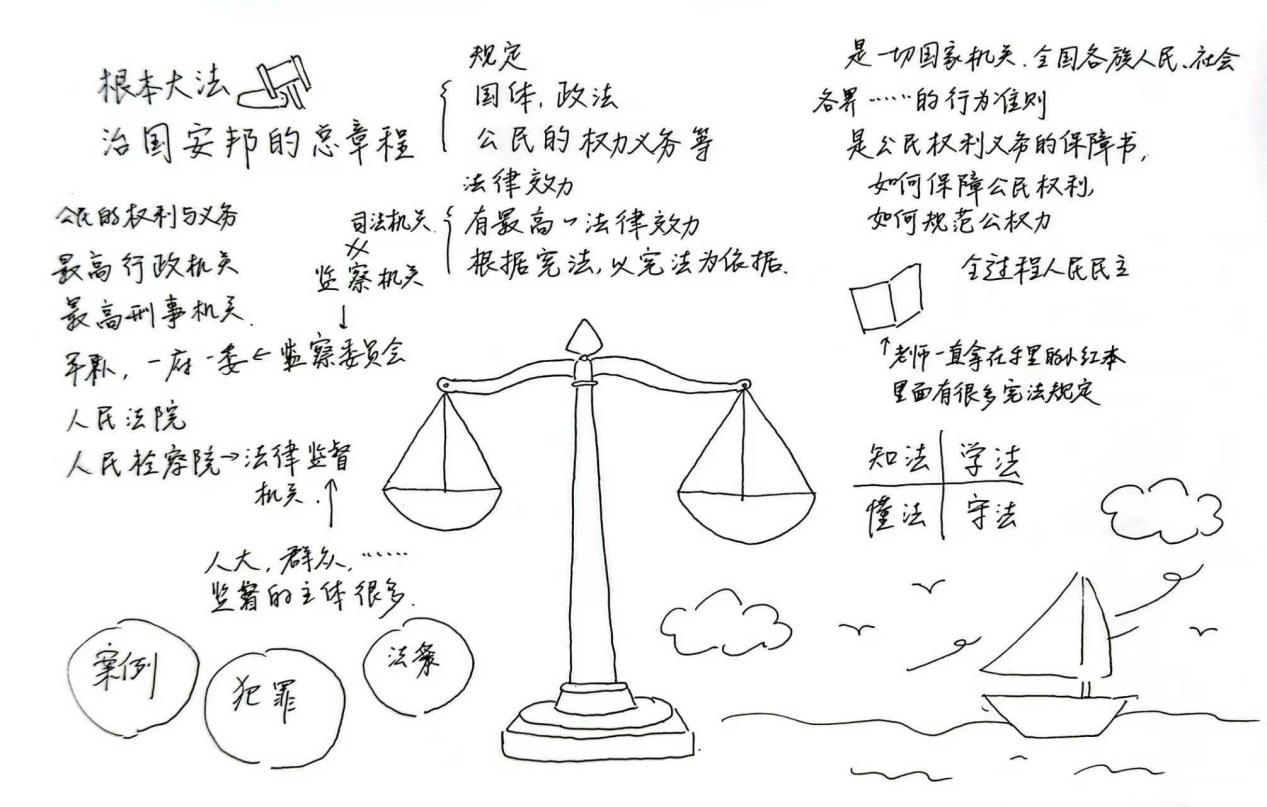 根本大法
治国安邦的总章程
规定
国体,政法
公民的权力义务等
法律效力
有最高一法律效力
根据宪法,以宪法为依据.
是一切国家机关、全国各族人民、社会
各界……的行为准则
是公民权利义务的保障书,
如何保障公民权利,
如何规范公权力
全过程人民民主
老师一直拿在手里的小红本
里面有很多宪法规定
公民的权利与义务
最高行政机关
最高刑事机关.
军队,一府一委←监察委员会
人民法院
人民检察院→法律监督
机关.
司法机关.
监察机关
人大,群众,……
监督的主体很多.
知法 学法
懂法 守法
案例
犯罪
法条